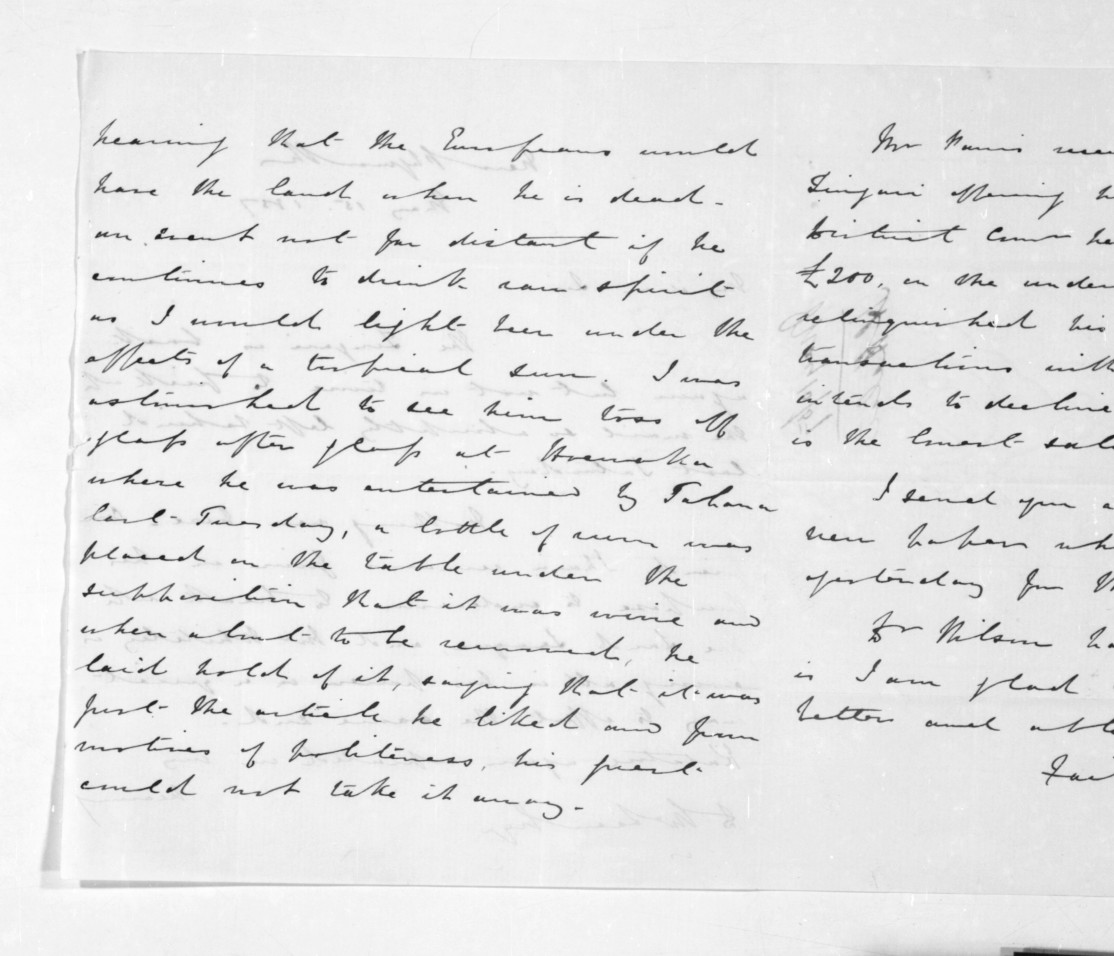 hearing that the Europeans would
have the land when he is dead -
an event not far distant if he
continues to drink raw spirit
as I would light beer under the
effects of a tropical sun. I was
astonished to see him toss off
glass after glass at
where he was entertained by Tahana
last Tuesday, a bottle of rum was
placed on the table under the
supposition that it was wine and
when about to be removed, he
laid hold of it, saying that it was
just the article he liked and from
motives of politeness, his
could not take it away -
Mr Parris
offering
District
£200, on the under
relinquished his
transactions with
intends to decline
is the lowest
I send you
new papers
yesterday for
Dr Wilson
is I am glad
better and able